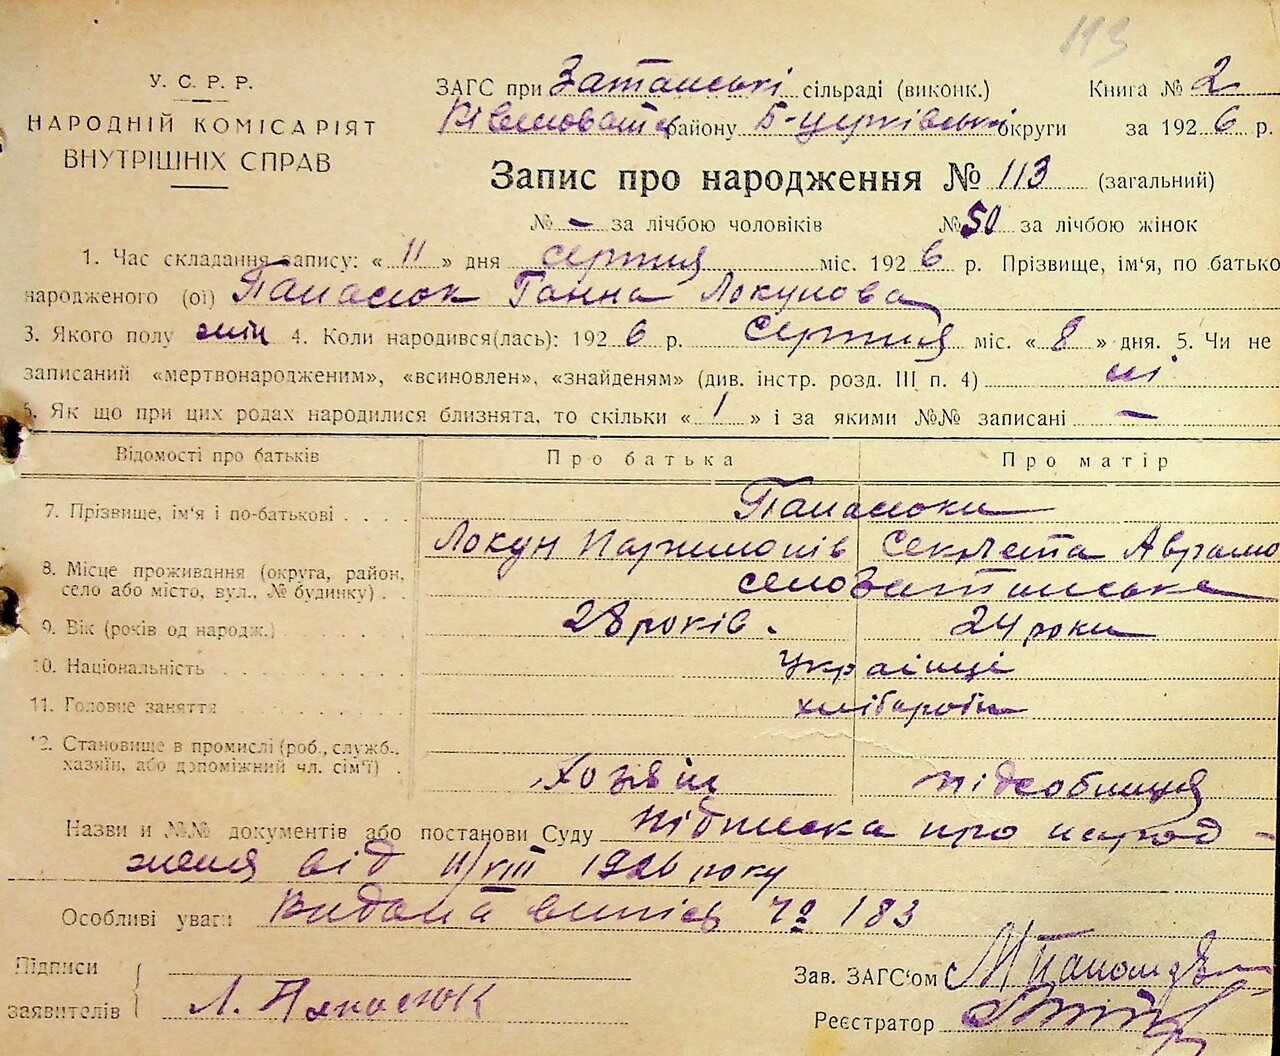 113
У. С. Р. Р.
НАРОДНІЙ КОМІСАРІЯТ
ВНУТРІШНІХ СПРАВ
ЗАГС при Затонські сільраді (виконк.) Книга № 2
району Б-церківські округи за 1926 р.
Запис про народження № 113 (загальний)
№ – за лічбою чоловіків № 50 за лічбою жінок
1. Час складання запису: « 11 » дня серпня міс. 1926 р. Прізвище, ім'я, по батько
народженого (ої) Панасюк Ганна Локунова
3. Якого полу жін 4. Коли народився(лась): 1926 р. серпня міс. « 8 » дня. 5. Чи не
записаний «мертвонародженим», «всиновлен», «знайденям» (див. інстр. розд. III п. 4) ні
6. Як що при цих родах народилися близнята, то скільки « 1 » і за якими №№ записані –
Відомості про батьків Про батька Про матір
7. Прізвище, ім'я і по-батькові . . . . Панасюки
Локун Пархимонів Секлета Аврамо
8. Місце проживання (округа, район,
село або місто, вул., № будинку) . . село
9. Вік (років од народж.) 28 років. 24 роки
10. Національність українці
11. Головне заняття хлібороби
12. Становище в промислі (роб., служб.,
хазяїн, або допоміжний чл. сім'ї) . Хозяїн підсобниця
Назви и №№ документів або постанови Суду підписка про народ-
женя від 11/VIII 1926 року
Особливі уваги Видана випись № 183
Підписи
заявителів Л. Панасюк
Зав. ЗАГС'ом
Реєстратор